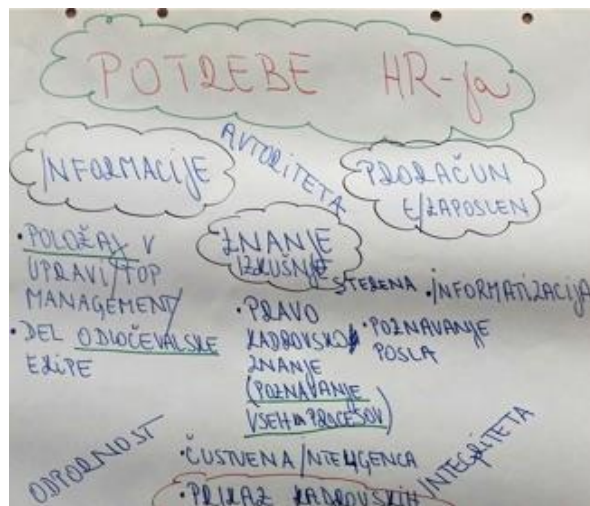 POTREBE HR-ja
INFORMACIJE
AVTORITETA
PRORAČUN
€/ZAPOSLEN
• POLOŽAJ V
UPRAVI/TOP
MANAGEMENT
• DEL ODLOČEVALSKE
EKIPE
ZNANJE
IZKUŠNJE
• PRAVO
KADROVSKO
ZNANJE
(POZNAVANJE
VSEH PROCESOV)
• INFORMATIZACIJA
• POZNAVANJE
POSLA
ODPORNOST
• ČUSTVENA INTELIGENCA
INTEGRITETA
• PRIKAZ KADROVSKIH